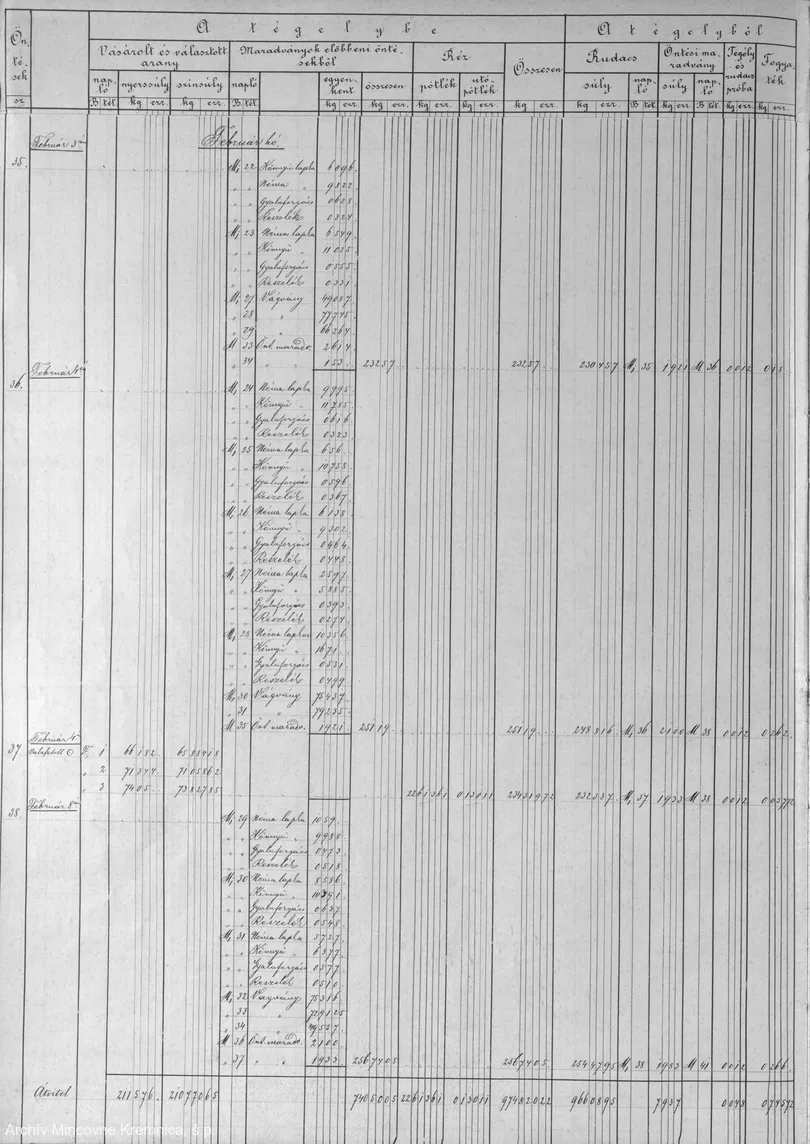 A tégelybe A tégelyből
Öntések Vásárolt és választott arany Maradványok előbbeni öntésekből Réz Összesen Rudacs Öntési maradvány Tégely és rudacs próba Fogyaték
napló nyerssúly színsúly napló egyenként összesen pótlék utópótlék súly napló súly napló
sz. B tét. kg err. kg err. B tét. kg err. kg err. kg err. kg err. kg err. kg err. B tét. kg err. B tét. kg err. kg err.
Február 3án Február hó.
35. M, 22 Könnyű lapka 6096
" " Néma " 9822
" " Gyaluforgács 0628
" " Reszelék 0324
M, 23 Néma lapka 6549
" " Könnyű " 11025
" " Gyaluforgács 0555
" " Reszelék 0331
M, 27 Vágvány 49087
" 28 " 77745
" 29 " 66264
M 33 Önt. maradv. 2614
" 34 " " 153 23257 23257 230457 M, 35 1921 M 36 0012 018
Február 4én
36. M, 24 Néma lapka 9995
" " Könnyű " 11785
" " Gyaluforgács 0616
" " Reszelék 0323
M, 25 Néma lapka 656
" " Könnyű " 10758
" " Gyaluforgács 0596
" " Reszelék 0367
M, 26 Néma lapka 6138
" " Könnyű " 9302
" " Gyaluforgács 0464
" " Reszelék 0448
M, 27 Néma lapka 2597
" " Könnyű " 5885
" " Gyaluforgács 0393
" " Reszelék 0277
M, 28 Néma lapka 10356
" " Könnyű " 1671
" " Gyaluforgács 0531
" " Reszelék 0499
M, 30 Vágvány 75437
" 31 " 79235
M 35 Önt. maradv. 1921 25119 25119 248816 M, 36 2100 M 38 0012 0262
Február 4n
37. 1 66182 6588418
" 2 71344 7105862
" 3 7405 7382785 2261361 013011 23431972 232337 M, 37 1933 M 38 0012 00372
Február 8án
38. M, 29 Néma lapka 1059
" " Könnyű " 9938
" " Gyaluforgács 0473
" " Reszelék 0518
M, 30 Néma lapka 8586
" " Könnyű " 10391
" " Gyaluforgács 0637
" " Reszelék 0548
M, 31 Néma lapka 5727
" " Könnyű " 6377
" " Gyaluforgács 0577
" " Reszelék 0510
M, 32 Vágvány 75316
" 33 " 729125
" 34 " 49557
M 36 Önt. maradv. 2100
" 37 " " 1933 2567405 2567405 2544795 M, 38 1983 M 41 0012 0266
Átvitel 211576 21077065 7405005 2261361 013011 97482022 9660895 7937 0048 074572
Archív Mincovne Kremnica, š.p.